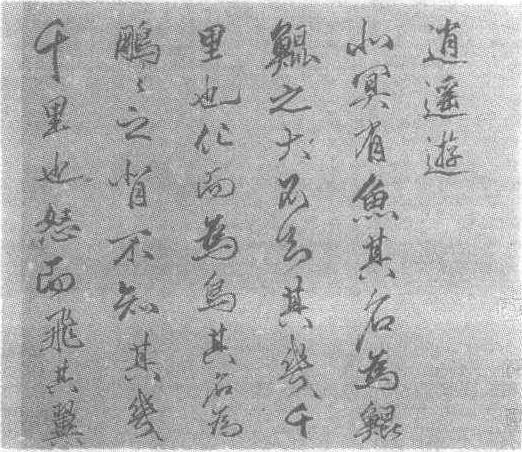 逍遥遊
北冥有魚其名為鯤
鯤之大不知其幾千
里也化而為鳥其名為
鵬〻之背不知其幾
千里也怒而飛其翼